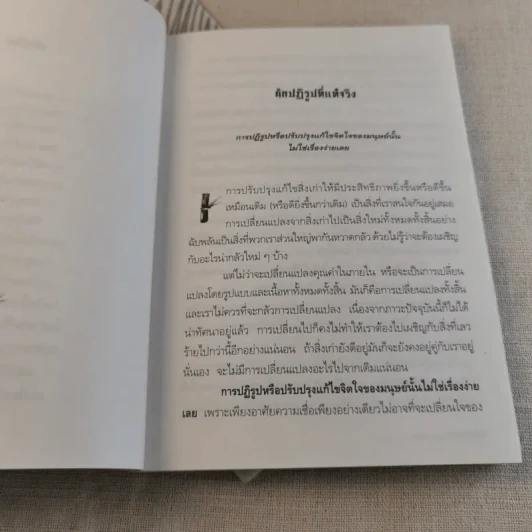 นักปฏิรูปที่แท้จริง
การปฏิรูปหรือปรับปรุงแก้ไขจิตใจของมนุษย์นั้น
ไม่ใช่เรื่องง่ายเลย
การปรับปรุงแก้ไขสิ่งเก่าให้มีประสิทธิภาพยิ่งขึ้นหรือดีขึ้น
เหมือนเดิม (หรือดียิ่งขึ้นกว่าเดิม) เป็นสิ่งที่เราสนใจกันอยู่เสมอ
การเปลี่ยนแปลงจากสิ่งเก่าไปเป็นสิ่งใหม่ทั้งหมดทั้งสิ้นอย่าง
ฉับพลันเป็นสิ่งที่พวกเราส่วนใหญ่พากันหวาดกลัว ด้วยไม่รู้ว่าจะต้องเผชิญ
กับอะไรน่ากลัวใหม่ ๆ บ้าง
แต่ไม่ว่าจะเปลี่ยนแปลงคุณค่าในภายใน หรือจะเป็นการเปลี่ยน
แปลงโดยรูปแบบและเนื้อหาทั้งหมดทั้งสิ้น มันก็คือการเปลี่ยนแปลงทั้งสิ้น
และเราไม่ควรที่จะกลัวการเปลี่ยนแปลง เนื่องจากภาวะปัจจุบันนี้ก็ไม่ได้
น่าทัศนาอยู่แล้ว การเปลี่ยนไปก็คงไม่ทำให้เราต้องไปเผชิญกับสิ่งที่เลว
ร้ายไปกว่านี้อีกอย่างแน่นอน ถ้าสิ่งเก่ายังดีอยู่มันก็จะยังคงอยู่คู่กับเราอยู่
นั่นเอง จะไม่มีการเปลี่ยนแปลงอะไรไปจากเดิมแน่นอน
การปฏิรูปหรือปรับปรุงแก้ไขจิตใจของมนุษย์นั้นไม่ใช่เรื่องง่าย
เลย เพราะเพียงอาศัยความเชื่อเพียงอย่างเดียวไม่อาจที่จะเปลี่ยนใจของ